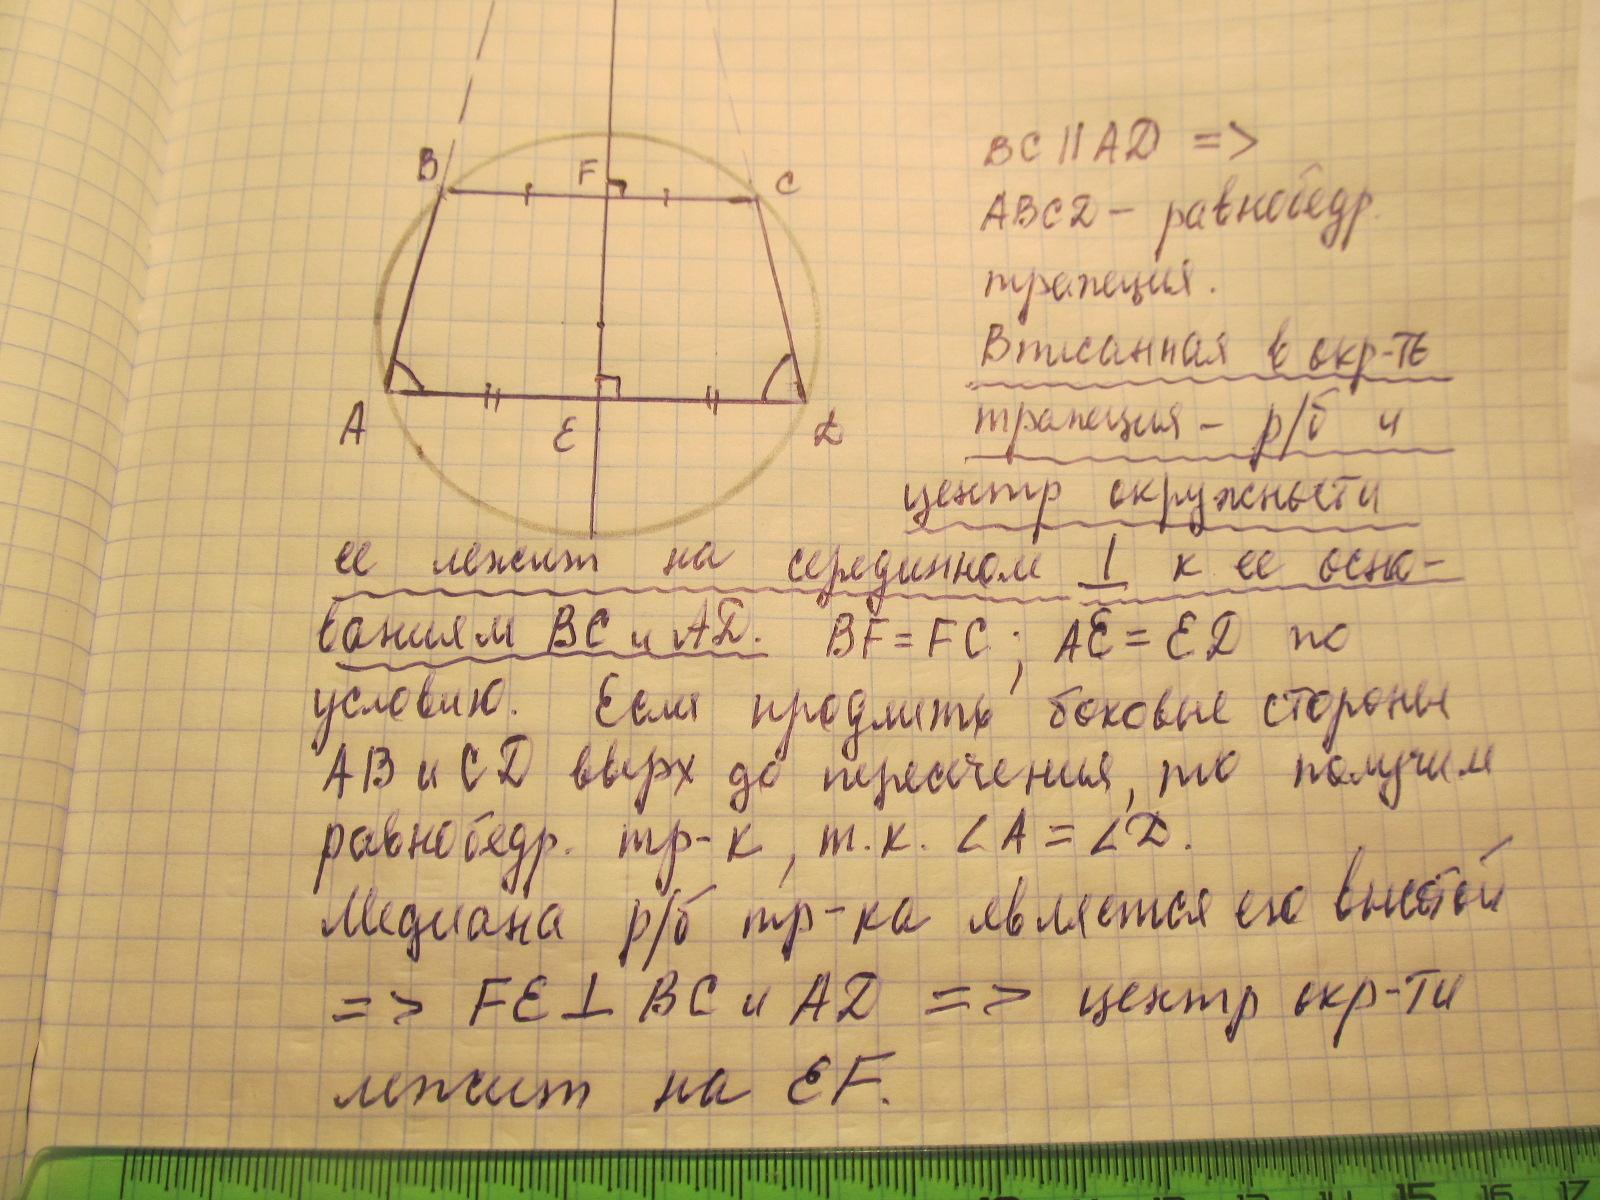 B
F
C
A
E
D
BC || AD =>
ABCD - равнобедр.
трапеция.
Вписанная в окр-ть
трапеция - р/б и
центр окружности
ее лежит на серединном ⊥ к ее осно-
ваниям BC и AD. BF = FC ; AE = ED по
условию. Если продлить боковые стороны
AB и CD вверх до пересечения, то получим
равнобедр. тр-к, т.к. ∠A = ∠D.
Медиана р/б тр-ка является его высотой
=> FE ⊥ BC и AD => центр окр-ти
лежит на EF.
13 14 15 16 17